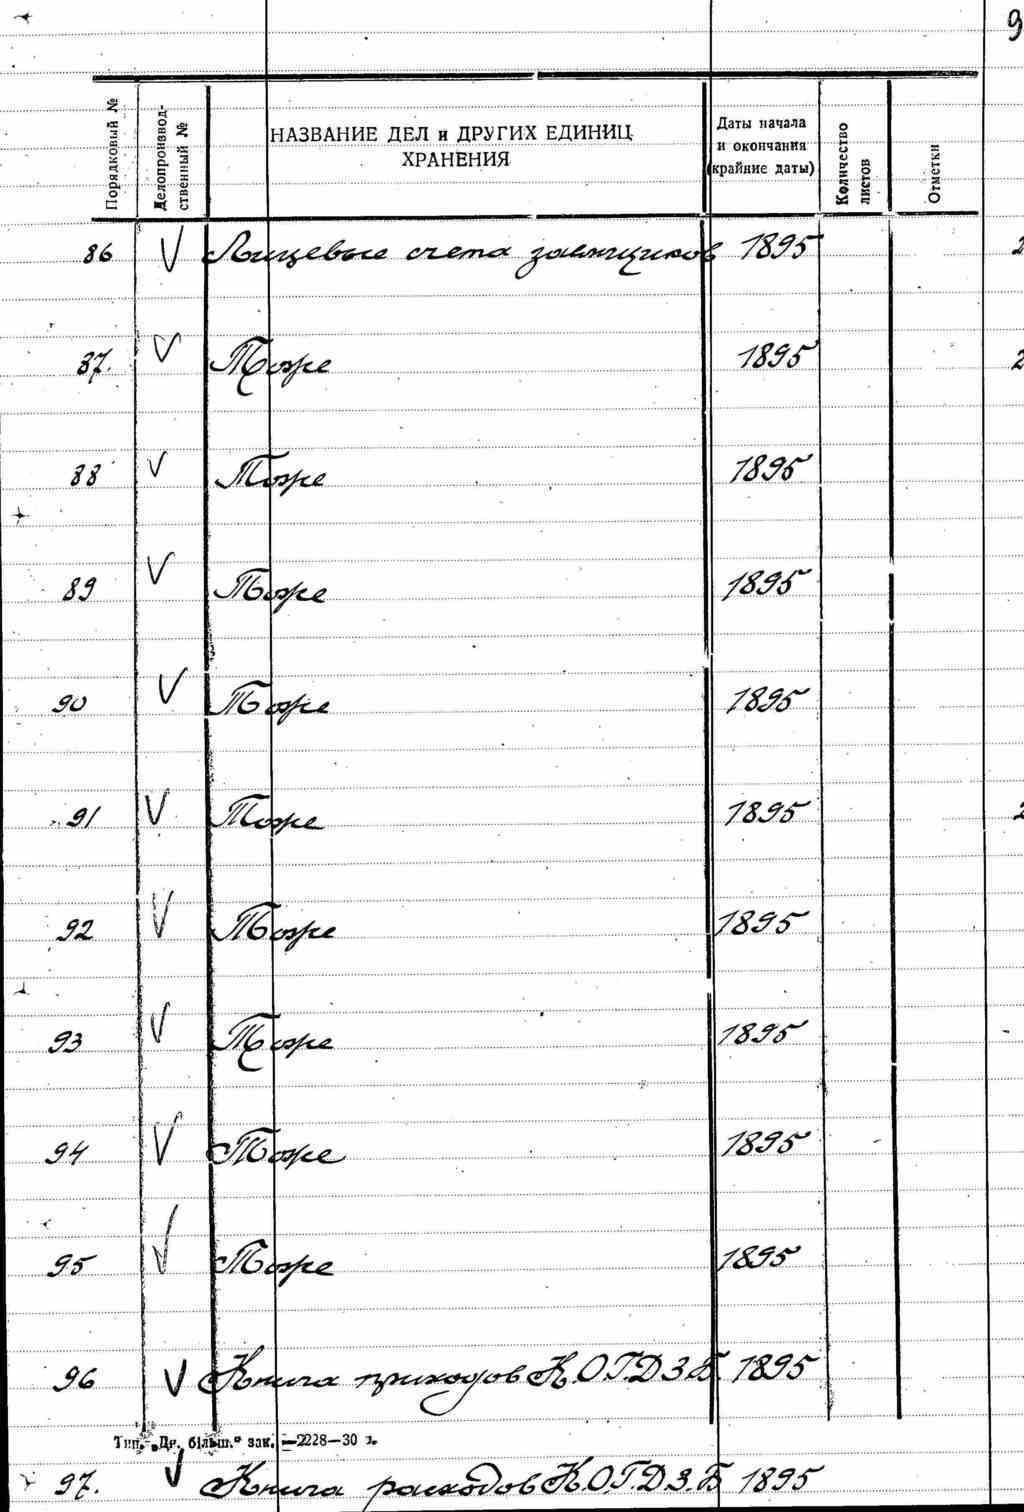 9
Порядковый №
Делопроизвод-
ственный №
НАЗВАНИЕ ДЕЛ и ДРУГИХ ЕДИНИЦ
ХРАНЕНИЯ
Даты начала
и окончания
(крайние даты)
Количество
листов
Отметки
86 V Лицевые счета заемщиков 1895
87. V Тоже 1895
88 V Тоже 1895
89 V Тоже 1895
90 V Тоже 1895
91 V Тоже 1895
92 V Тоже 1895
93 V Тоже 1895
94 V Тоже 1895
95 V Тоже 1895
96 V Книга приходов К.О.Г.Д.З.Б. 1895
Тип. „Др. більш.“ зак. —2228—30 г.
97. V Книга расходов К.О.Г.Д.З.Б 1895